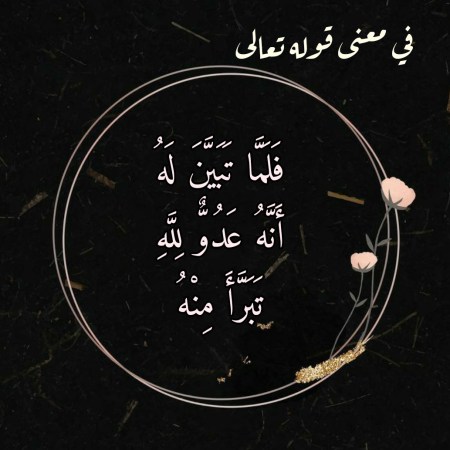 في معنى قوله تعالى
فَلَمَّا تَبَيَّنَ لَهُ
أَنَّهُ عَدُوٌّ لِلَّهِ
تَبَرَّأَ مِنْهُ